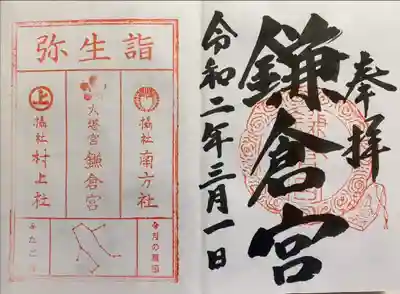 奉拝
鎌倉宮
令和二年三月一日
弥生詣
摂社 南方社
大塔宮 鎌倉宮
上
摂社 村上社
今月の星座
ふたご